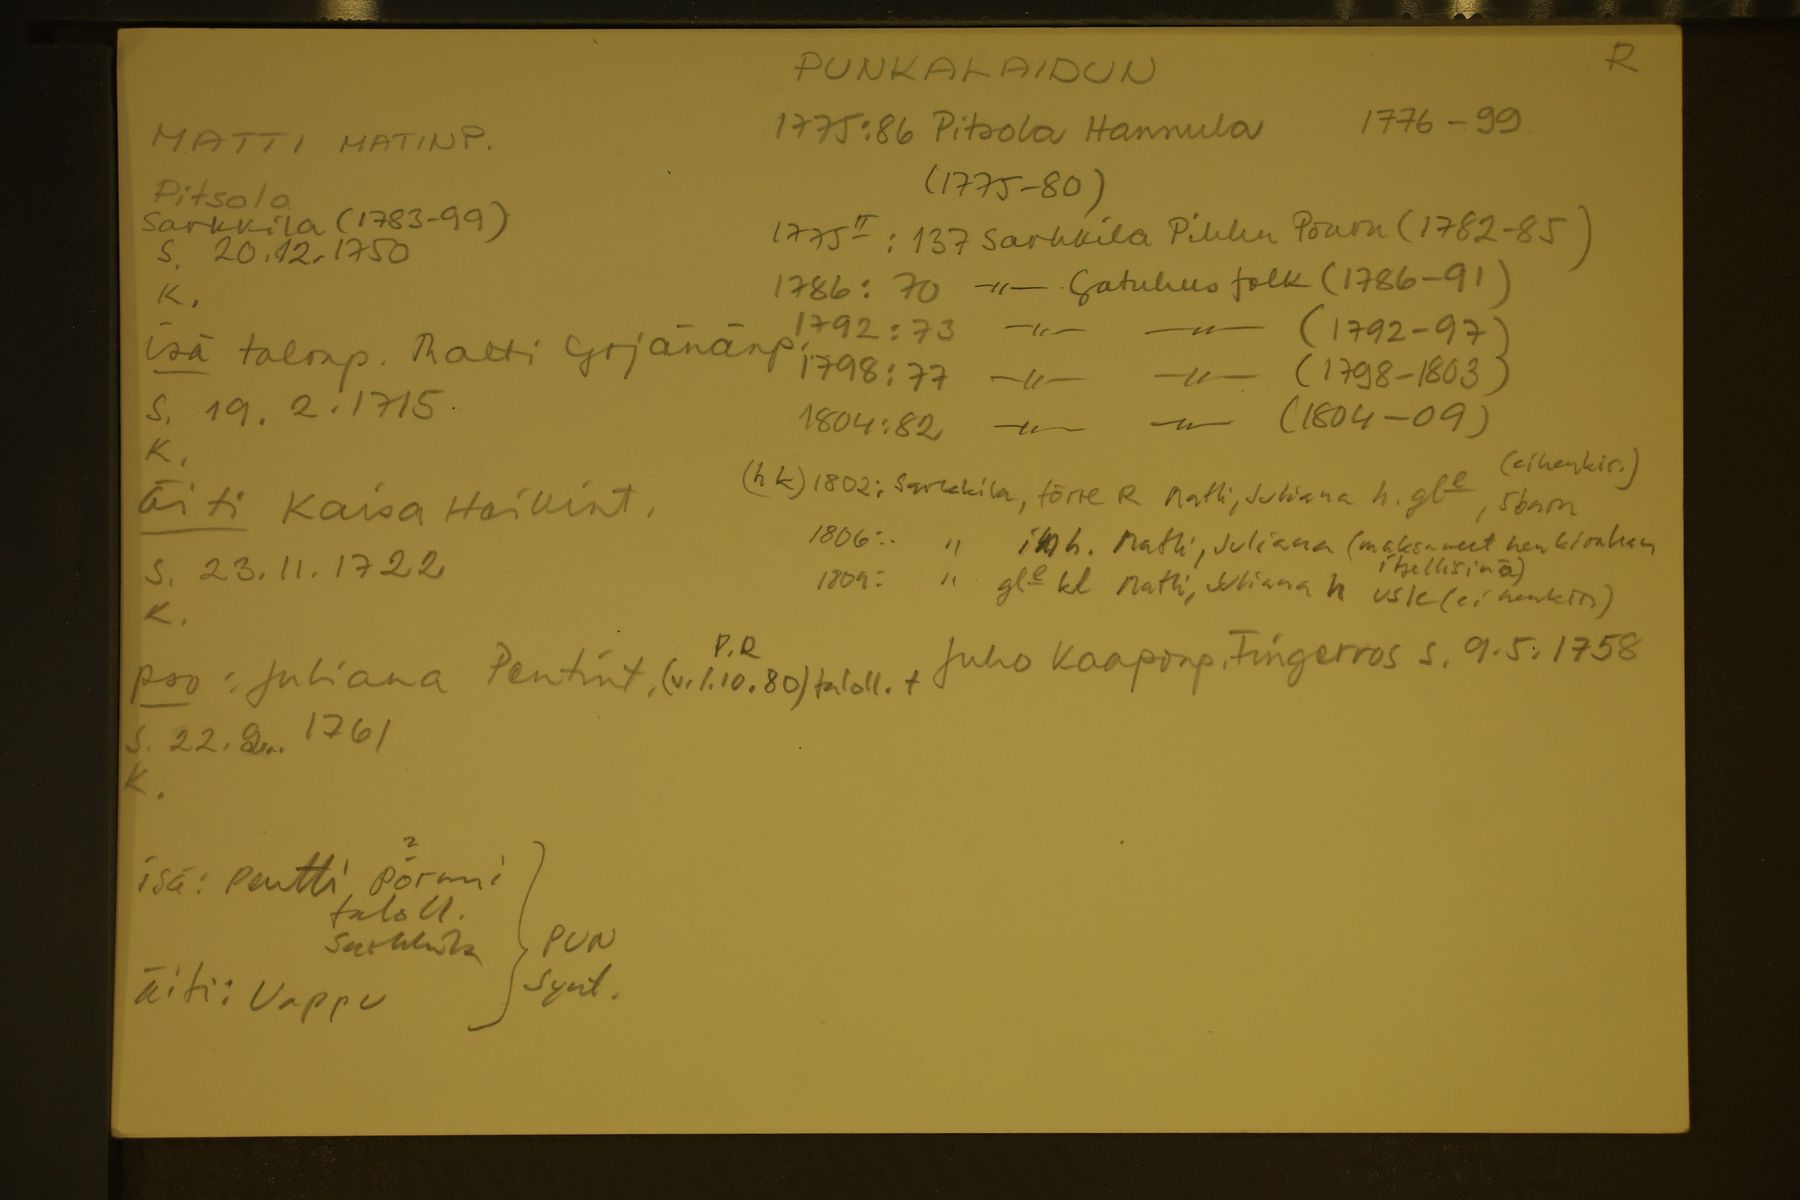 PUNKALAIDUN
R
MATTI MATINP.
Pitsola
Sarkkila (1783-99)
S. 20.12.1750
K.
isä talonp. Matti Yrjänänp.
S. 19. 2. 1715
K.
Äiti Kaisa Heikint.
S. 23.11.1722
K.
1775:86 Pitsola Hannula 1776-99
(1775-80)
1775II: 137 Sarkkila Pikku Pouru (1782-85)
1786: 70 -"- Gatuhusfolk (1786-91)
1792:73 -"- -"- (1792-97)
1798:77 -"- -"- (1798-1803)
1804:82 -"- -"- (1804-09)
(eihenkir.)
(hk) 1802: Sarkkila, förre R Matti, Juliana h. gle, 5barn
1806: " inh. Matti, Juliana (maksaneet henkirahan
itsellisinä)
1809: " gle kl Matti, Juliana h usk (ei henkir)
P.R
pso: Juliana Pentint. (v. 1.10.80) taloll. + Juho Kaaponp. Fingerroos s. 9.5.1758
S. 22. 1761
K.
?
isä: Pentti Pörnni
taloll.
Sarkkila
Äiti: Vappu
PUN
synt.